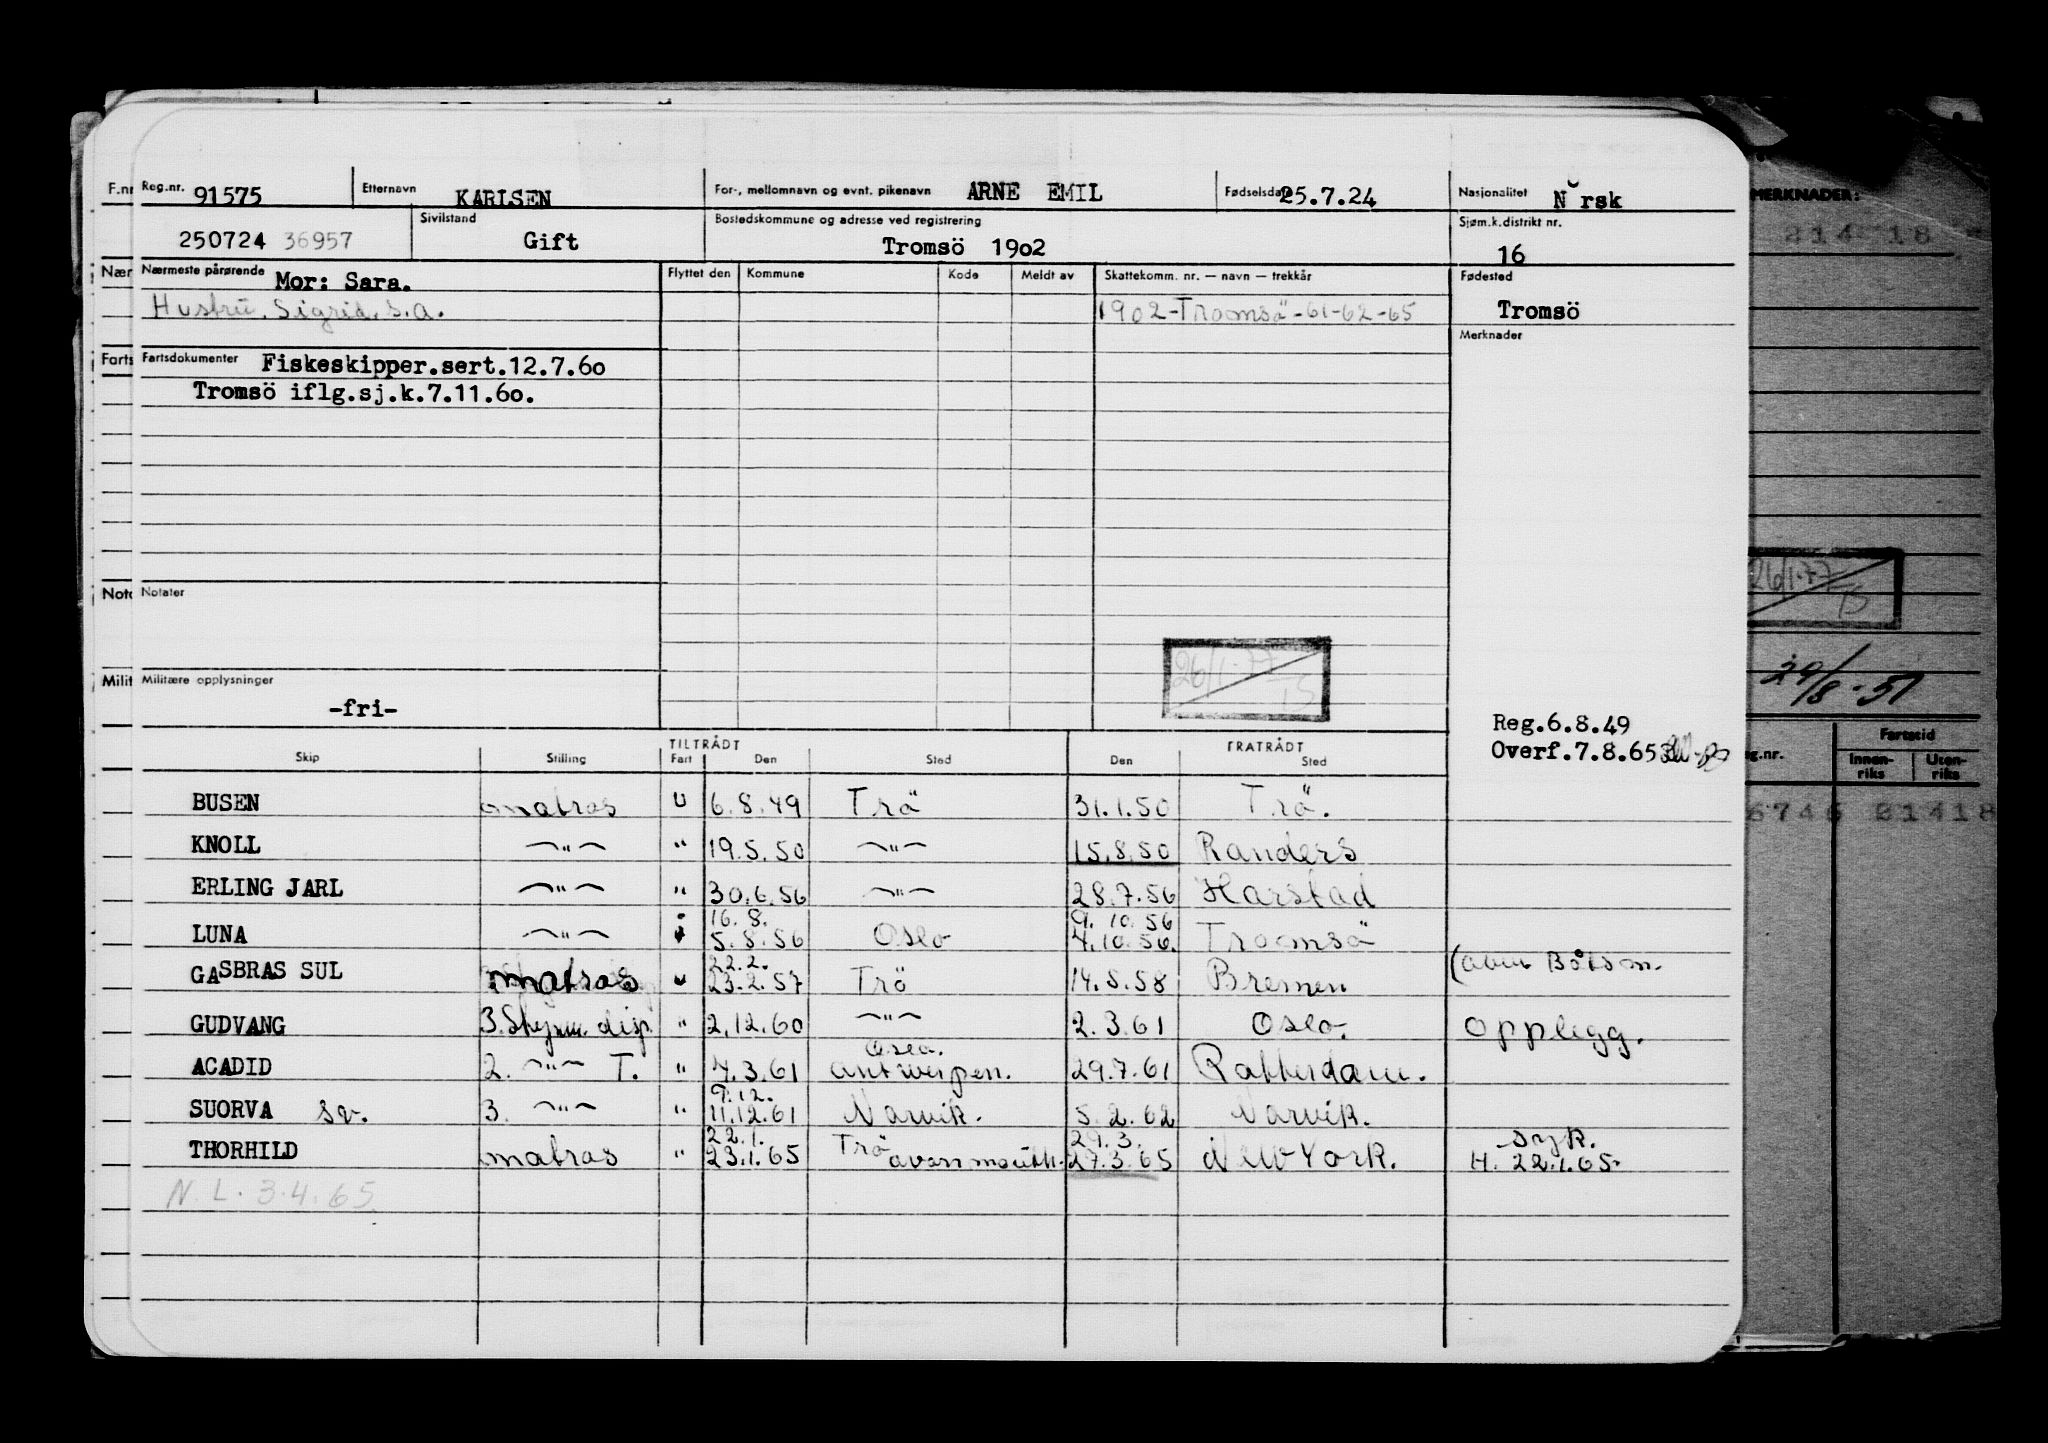 F.nr Reg.nr. 91575 Etternavn KARLSEN For-, mellomnavn og evnt. pikenavn ARNE EMIL Fødselsdato 25.7.24 Nasjonalitet Norsk MERKNADER:
250724 36957 Sivilstand Gift Bostedskommune og adresse ved registrering Tromsö 19o2 Sjøm.k.distrikt nr. 16
Nær Nærmeste pårørende Mor: Sara. Flyttet den Kommune Kode Meldt av Skattekomm. nr. — navn — trekkår Fødested
Hustru. Sigrid. S.A. 1902-Tromsö-61-62-65 Tromsö
Merknader
Farts Fartsdokumenter Fiskeskipper.sert.12.7.6o
Tromsö iflg.sj.k.7.11.6o.
26/1-77
Noto Notater
26/1-77
15
Milit Militære opplysninger 29/8-51
-fri-
Reg.6.8.49
Overf.7.8.65
Skip Stilling TILTRÅDT Fart Den Sted FRATRÅDT Den Sted Fartstid Innen-riks Uten-riks
BUSEN matros U 6.8.49 Trö 31.1.50 Trö. 21418
KNOLL —"— " 19.5.50 —"— 15.8.50 Randers
ERLING JARL —"— " 30.6.56 —"— 28.7.56 Harstad
16.8. 9.10.56
LUNA —"— 5.8.56 Oslo 4.10.56. Tromsö
22.2.
GASBRAS SUL matros U 23.2.57 Trö 14.5.58 Bremen Båtsm.
GUDVANG 3. Styrm. disp. " 2.12.60 —"— 2.3.61 Oslo. Opplegg.
Oslo.
ACADID 2. —"— T. " 4.3.61 Antwerpen. 29.7.61 Rotterdam.
9.12.
SUORVA sv. 3. —"— " 11.12.61 Narvik. 5.2.62 Narvik.
22.1. Trö 29.3. syk.
THORHILD matros " 23.1.65 Avonmouth. 27.3.65 New York. H. 22.1.65.
N.L. 3.4.65